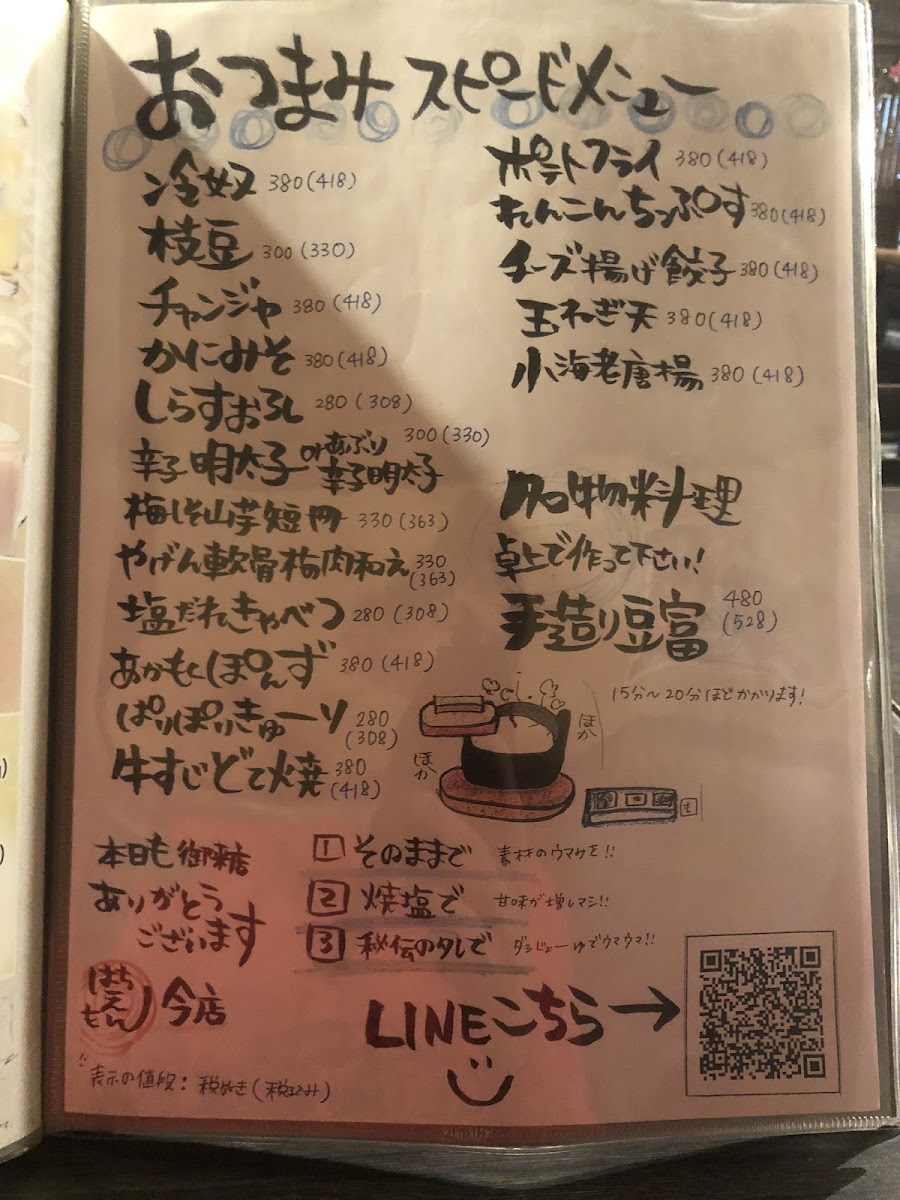 おつまみ スピードメニュー
冷奴 380(418)
枝豆 300(330)
チャンジャ 380(418)
かにみそ 380(418)
しらすおろし 280(308)
辛子明太子 or あぶり辛子明太子 300(330)
梅しそ山芋短冊 330(363)
やげん軟骨梅肉和え 330(363)
塩だれきゃべつ 280(308)
あかもくぽんず 380(418)
ぱりぽりきゅーり 280(308)
牛すじどて焼 380(418)
ポテトフライ 380(418)
れんこんちっぷす 380(418)
チーズ揚げ餃子 380(418)
玉ねぎ天 380(418)
小海老唐揚 380(418)
名物料理
卓上で作って下さい!
手造り豆富 480(528)
15分〜20分ほどかかります!
ほか
ほか
1 そのままで 素材のウマみを!!
2 焼塩で 甘味が増しマシ!!
3 秘伝のタレで ダシじょーゆでウマウマ!!
本日も御来店
ありがとう
ございます
今店
LINEこちら→
表示の値段:税ぬき(税込み)